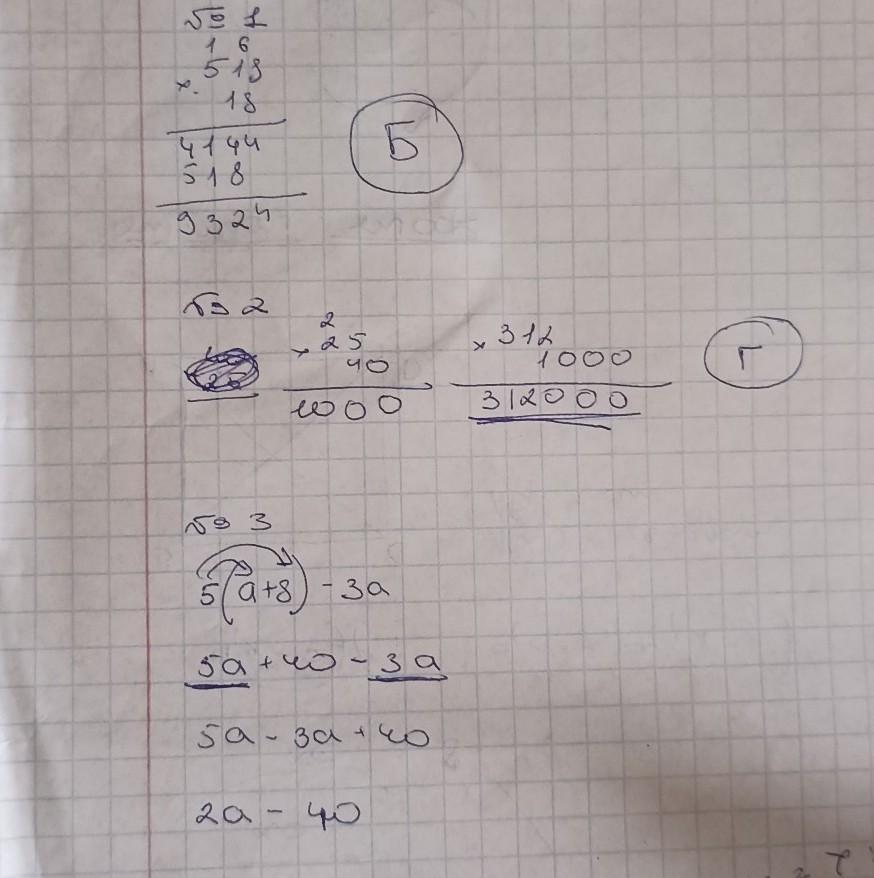 № 1
1 6
× 518
18
4144
518
9324
Б
№ 2
2
× 25
40
1000
× 312
1000
312000
Г
№ 3
5(a+8)-3a
5a+40-3a
5a-3a+40
2a-40